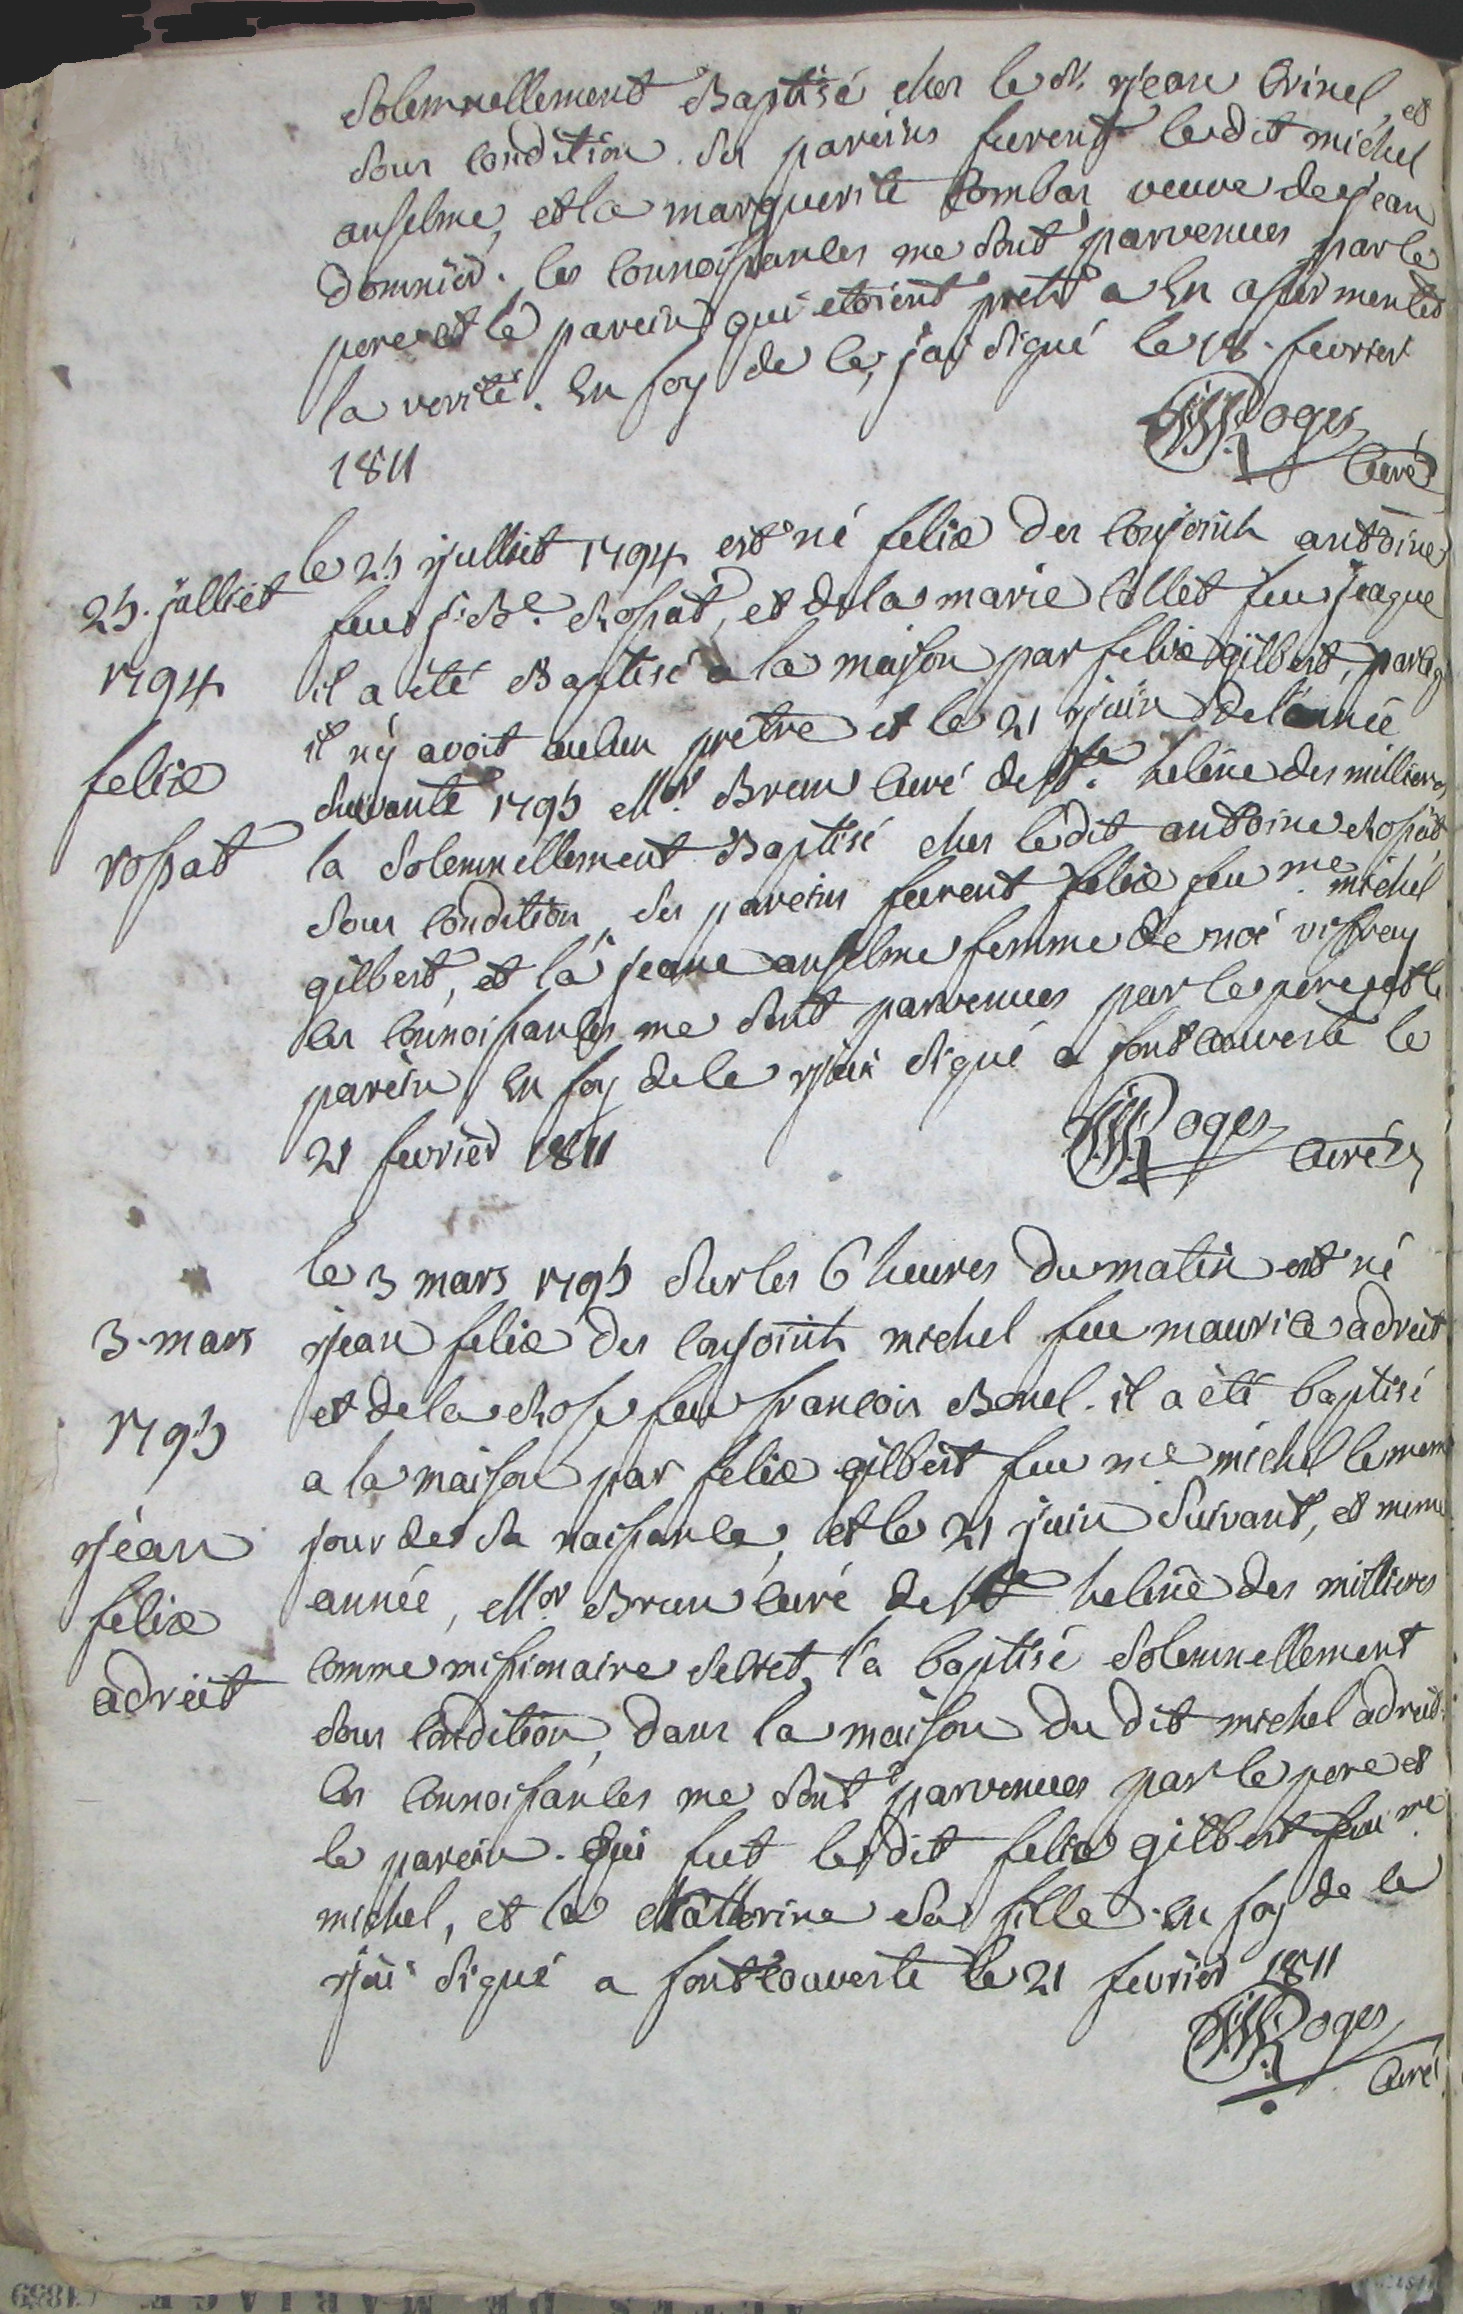 solemnellement Baptisé ches le Sr. jean Crinel, et
sous condition. ses pareins furent ledit michel
anselme, et la marguerite Combas veuve de jean
Domnier. les connoissances me sont parvenues par le
pere et le parein qui etoient prets a en assermenter
la verité. En foy de ce, j'ai signé le 18. fevrier
1811
Roges
Curé
25. julliet
1794
felix
rossat
le 25 julliet 1794 est né felix des conjoints antoine
feu j. Be. Rossat, et de la marie Collet feu jaque
il a été Baptisé a la maison par felix gilbert, parceq
il n'y avoit aucun pretre et le 21 juin de l'année
suivante 1795 Mr. Brun Curé de Ste. heleine des millieres
la solemnellement Baptisé ches ledit antoine Rossat
sous condition, ses pareins furent felix feu me. michel
gilbert, et la jeane anselme femme de noé vissrey
les connoissances me sont parvenues par le pere et le
parein En foy de ce j'ai signé a fontcouverte le
21 fevrier 1811
Roges
Curé
3. mars
1795
jean
felix
adreit
le 3 mars 1795 sur les 6 heures du matin est né
jean felix des conjoints michel feu maurice adreit
et de la Rose feu francois Bonel. il a été baptisé
a la maison par felix gilbert feu me michel le meme
jour de sa naissance, et le 21 juin suivant, et meme
année, Mr. Brun Curé de Ste heleine des millieres
comme missionaire secret, l'a baptisé solemnellement
sous condition, dans la maison du dit michel adreit.
les connoissances me sont parvenues par le pere et
le parein. Qui fut le dit felix gilbert feu me.
michel, et la Catterine sa fille. en foy de ce
j'ai signé a fontcouverte le 21 fevrier 1811
Roges
Curé